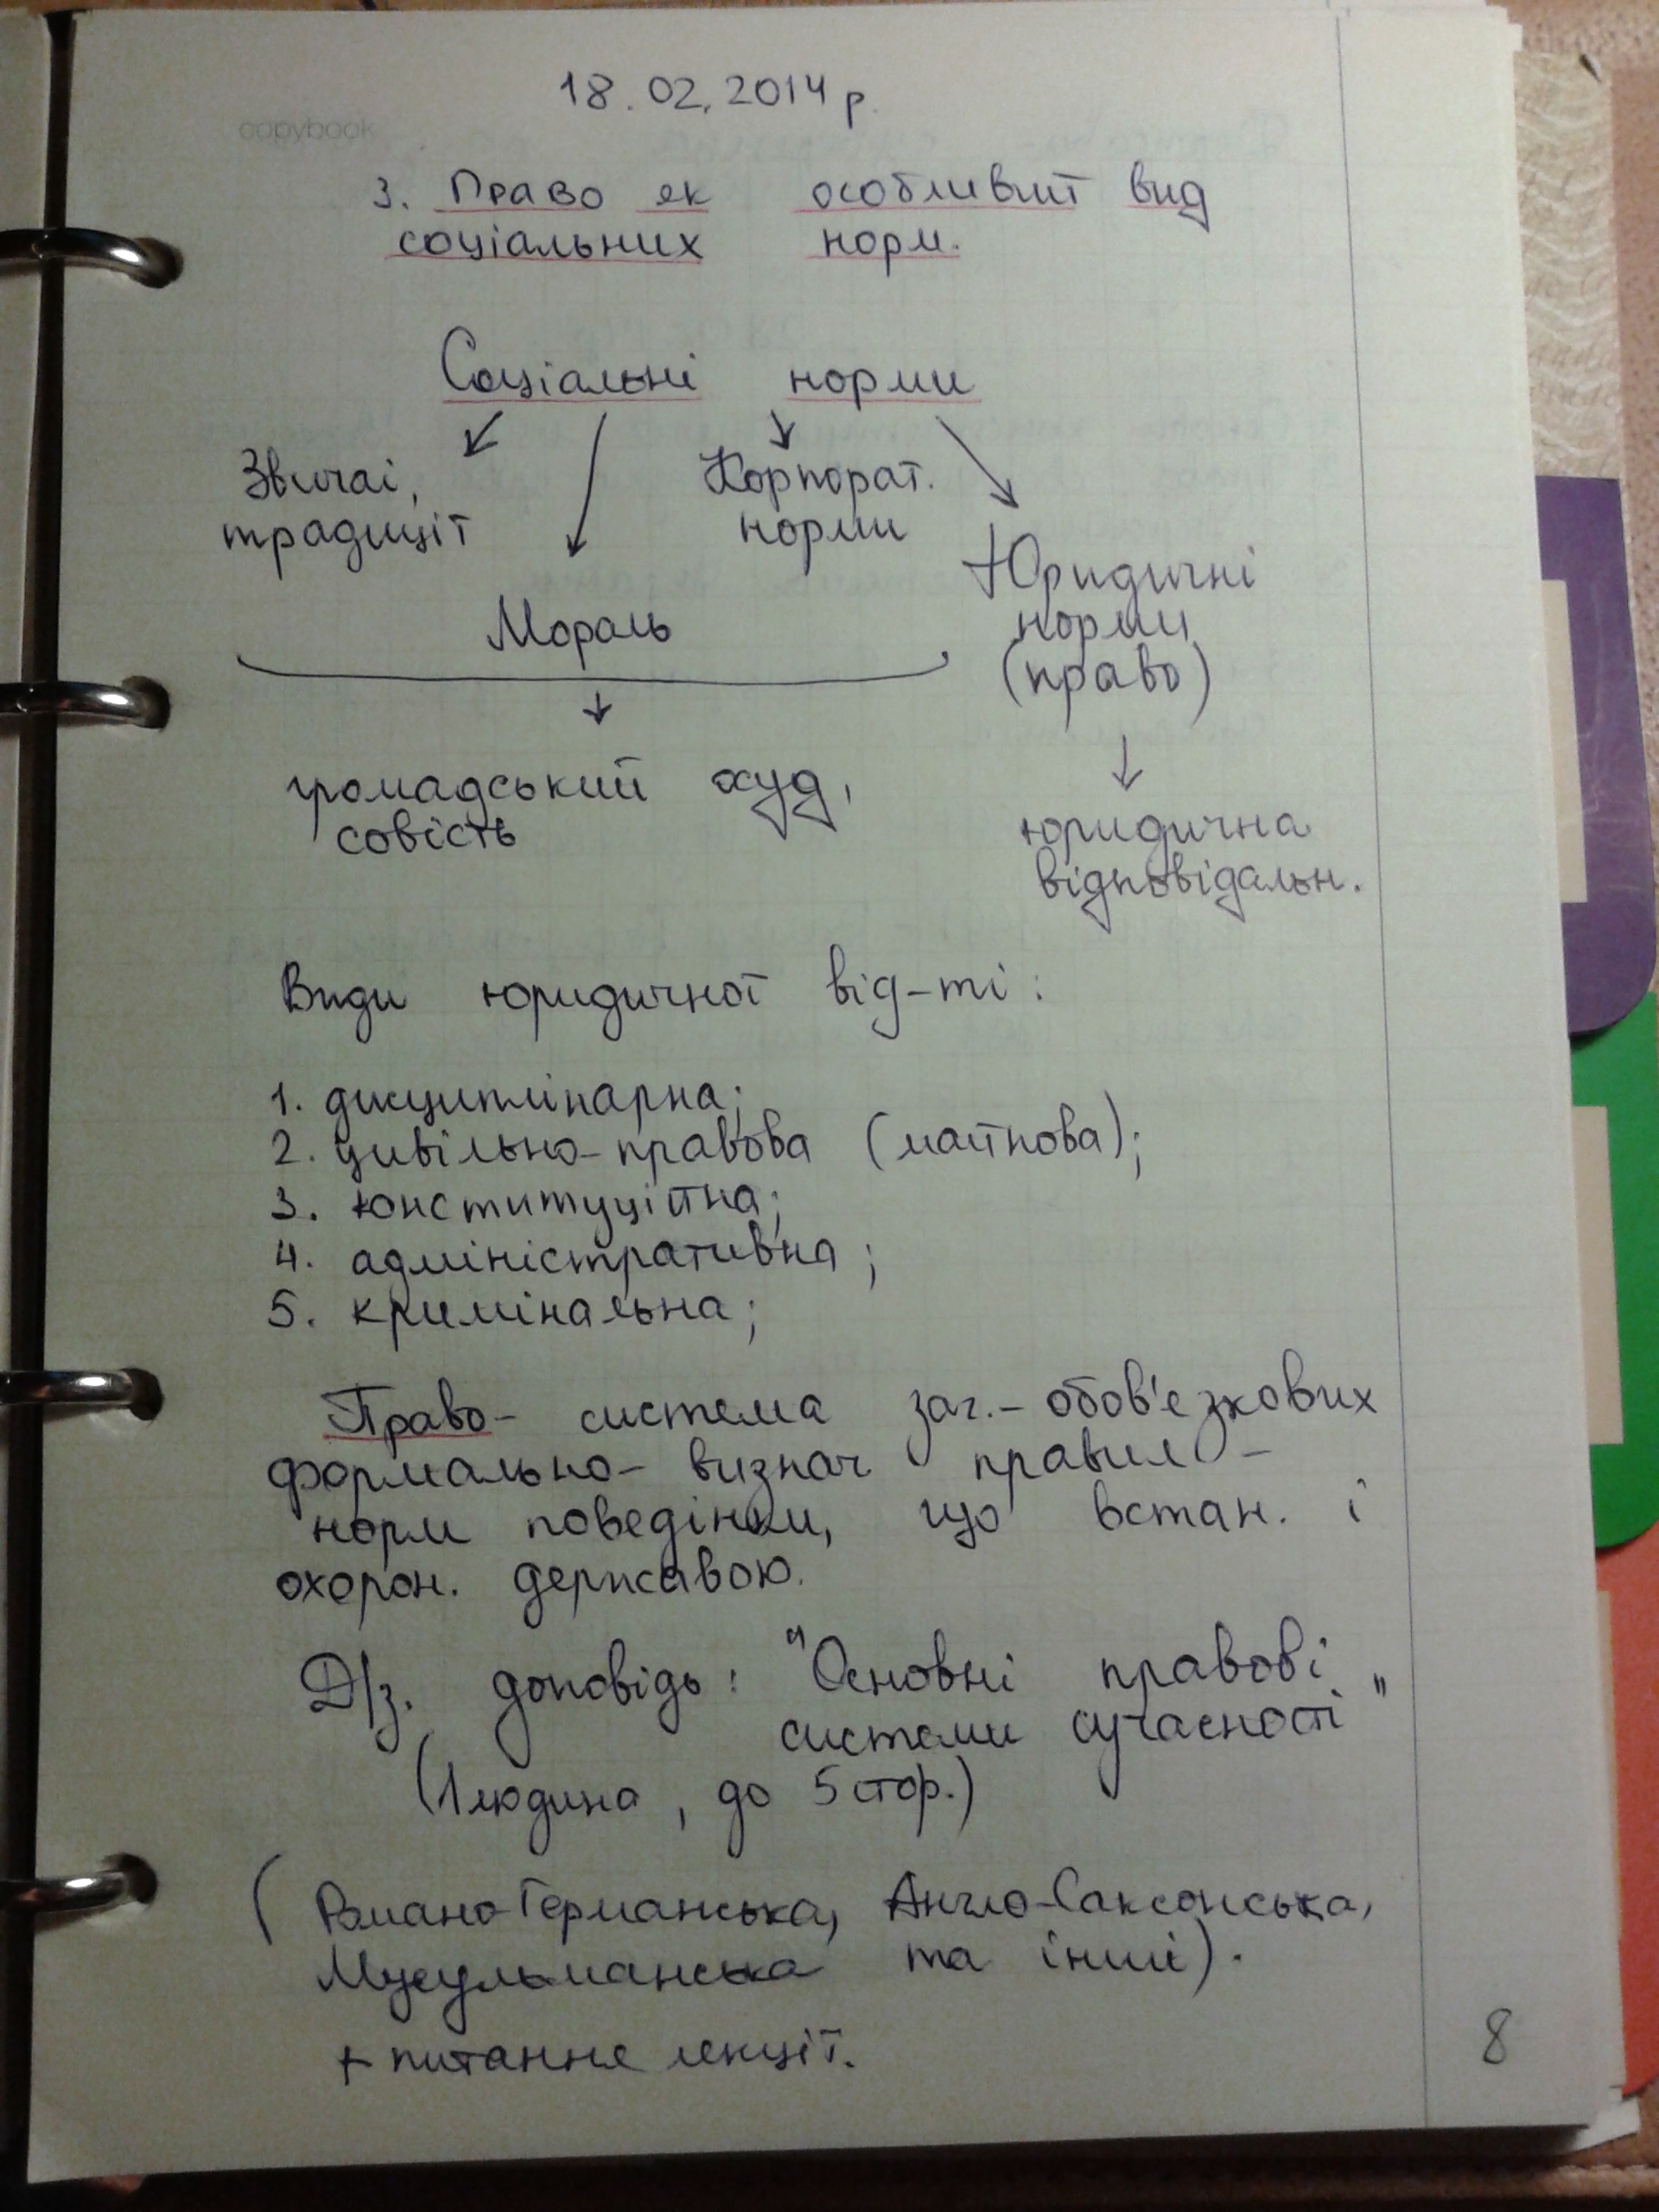 18.02.2014 р.
copybook
3. Право як особливий вид
соціальних норм.
Соціальні норми
Звичаї,
традиції
Корпорат.
норми
Мораль
Юридичні
норми
(право)
громадський осуд,
совість
юридична
відповідальн.
Види юридичної від-ті:
1. дисциплінарна;
2. цивільно-правова (майнова);
3. конституційна;
4. адміністративна;
5. кримінальна;
Право - система заг.-обов'язкових
формально-визнач правил -
норм поведінки, що встан. і
охорон. державою.
Д/з. доповідь: "Основні правові
системи сучасності"
(1 людина, до 5 стор.)
(Романо-Германська, Англо-Саксонська,
Мусульманська та інші).
+ питання лекції.
8